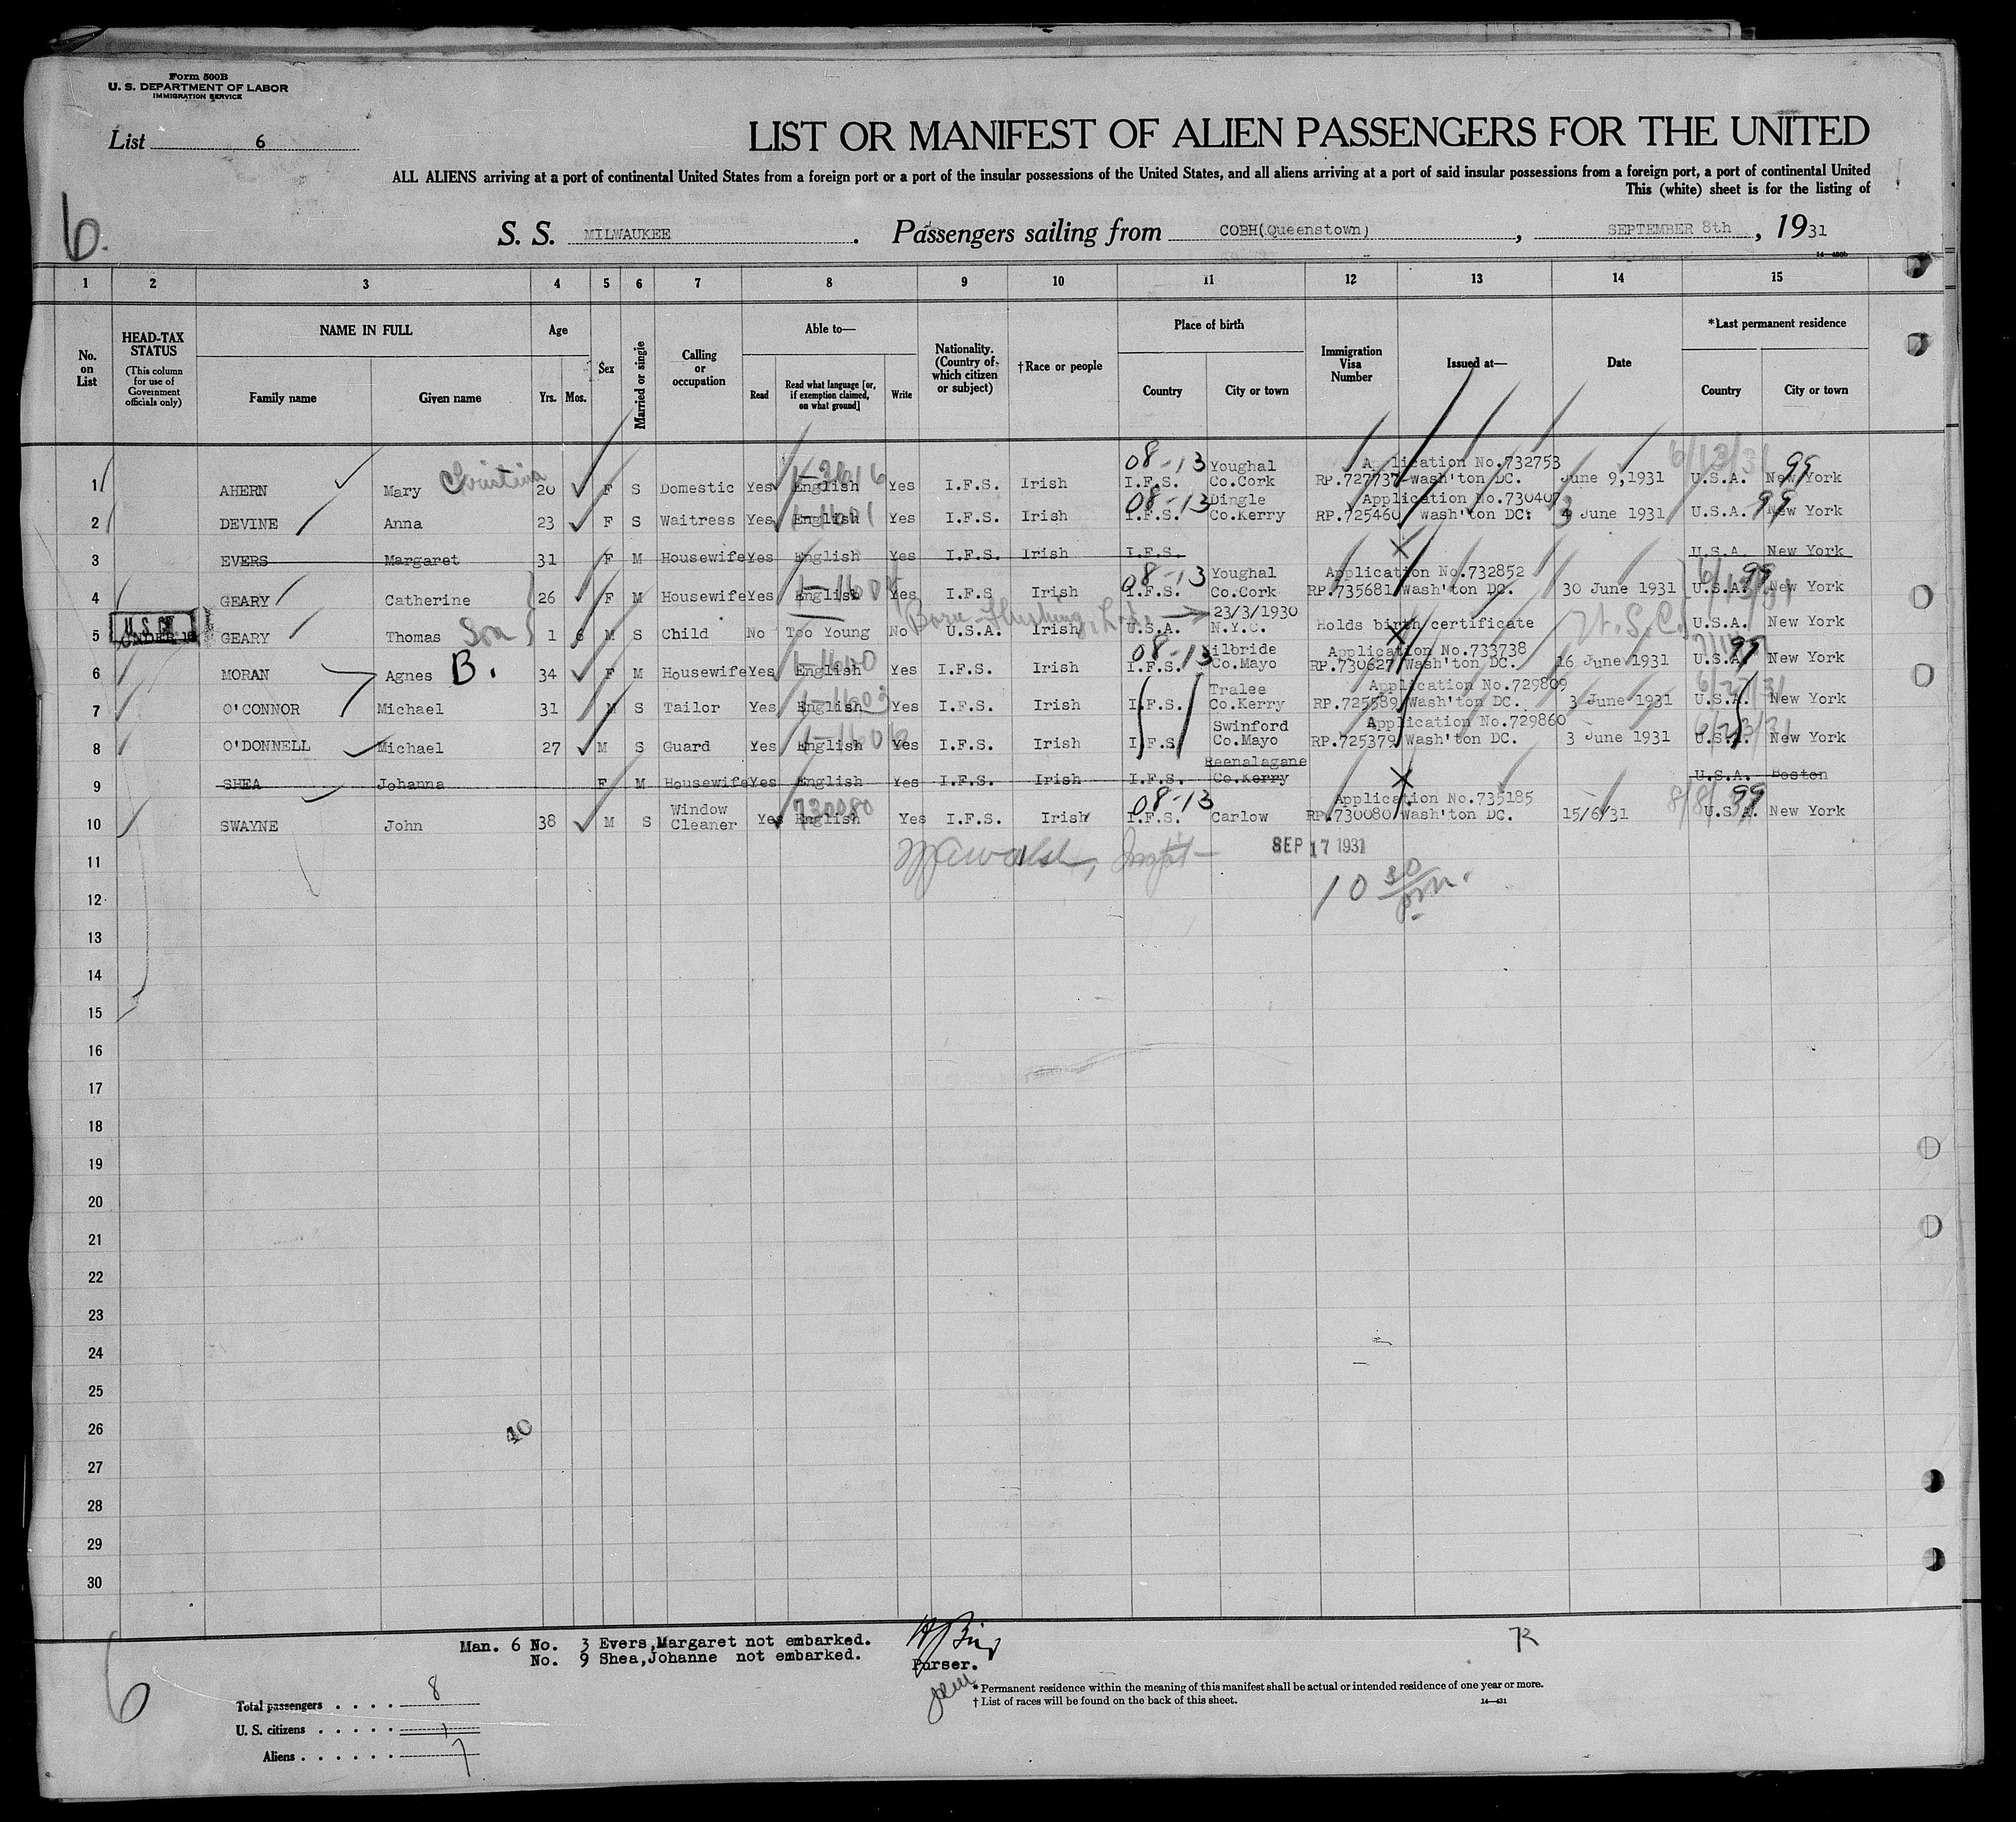 Form 500B
U. S. DEPARTMENT OF LABOR
IMMIGRATION SERVICE
List 6
LIST OR MANIFEST OF ALIEN PASSENGERS FOR THE UNITED
ALL ALIENS arriving at a port of continental United States from a foreign port or a port of the insular possessions of the United States, and all aliens arriving at a port of said insular possessions from a foreign port, a port of continental United
This (white) sheet is for the listing of
6.
S. S. MILWAUKEE . Passengers sailing from COBH(Queenstown) , SEPTEMBER 8th , 1931
1 2 3 4 5 6 7 8 9 10 11 12 13 14 15
No. on List
HEAD-TAX STATUS (This column for use of Government officials only)
NAME IN FULL Family name Given name
Age Yrs. Mos.
Sex
Married or single
Calling or occupation
Able to— Read Read what language [or, if exemption claimed, on what ground] Write
Nationality. (Country of which citizen or subject)
†Race or people
Place of birth Country City or town
Immigration Visa Number
Issued at—
Date
*Last permanent residence Country City or town
08-13 Youghal Application No.732753 6/13/31 99
1 AHERN Mary Christina 20 F S Domestic Yes English Yes I.F.S. Irish I.F.S. Co.Cork RP.727737 Wash'ton DC. June 9,1931 U.S.A. New York
08-13 Dingle Application No.730407 99
2 DEVINE Anna 23 F S Waitress Yes English Yes I.F.S. Irish I.F.S. Co.Kerry RP.725460 Wash'ton DC. June 1931 U.S.A. New York
3 EVERS Margaret 31 F M Housewife Yes English Yes I.F.S. Irish I.F.S. U.S.A. New York
08-13 Youghal Application No.732852 99
4 GEARY Catherine 26 F M Housewife Yes English Yes I.F.S Irish I.F.S. Co.Cork RP.735681 Wash'ton DC. 30 June 1931 U.S.A. New York
U.S.C. Born Flushing, L.I. 23/3/1930
UNDER 16
5 GEARY Thomas Son 1 6 M S Child No Too Young No U.S.A. Irish U.S.A. N.Y.C. Holds birth certificate U.S.C. U.S.A. New York
08-13 Kilbride Application No.733738 99
6 MORAN Agnes B. 34 F M Housewife Yes English Yes I.F.S. Irish I.F.S. Co.Mayo RP.730627 Wash'ton DC. 16 June 1931 U.S.A. New York
Tralee Application No.729809
7 O'CONNOR Michael 31 M S Tailor Yes English Yes I.F.S. Irish I.F.S. Co.Kerry RP.725589 Wash'ton DC. 3 June 1931 U.S.A. New York
Swinford Application No.729860
8 O'DONNELL Michael 27 M S Guard Yes English Yes I.F.S. Irish I.F.S Co.Mayo RP.725379 Wash'ton DC. 3 June 1931 U.S.A. New York
Reenalagane
9 SHEA Johanna F M Housewife Yes English Yes I.F.S. Irish I.F.S. Co.Kerry U.S.A. Boston
Window 730080 08-13 Application No.735185 99
10 SWAYNE John 38 M S Cleaner Yes English Yes I.F.S. Irish I.F.S. Carlow RP.730080 Wash'ton DC. 15/6/31 U.S.A. New York
11 SEP 17 1931
12 10 30 pm.
13
14
15
16
17
18
19
20
21
22
23
24
25
26 40
27
28
29
30
Man. 6 No. 3 Evers,Margaret not embarked.
No. 9 Shea,Johanne not embarked.
Purser.
6
Total passengers . . . . 8
U. S. citizens . . . . . 1
Aliens . . . . . . 7
* Permanent residence within the meaning of this manifest shall be actual or intended residence of one year or more.
† List of races will be found on the back of this sheet.